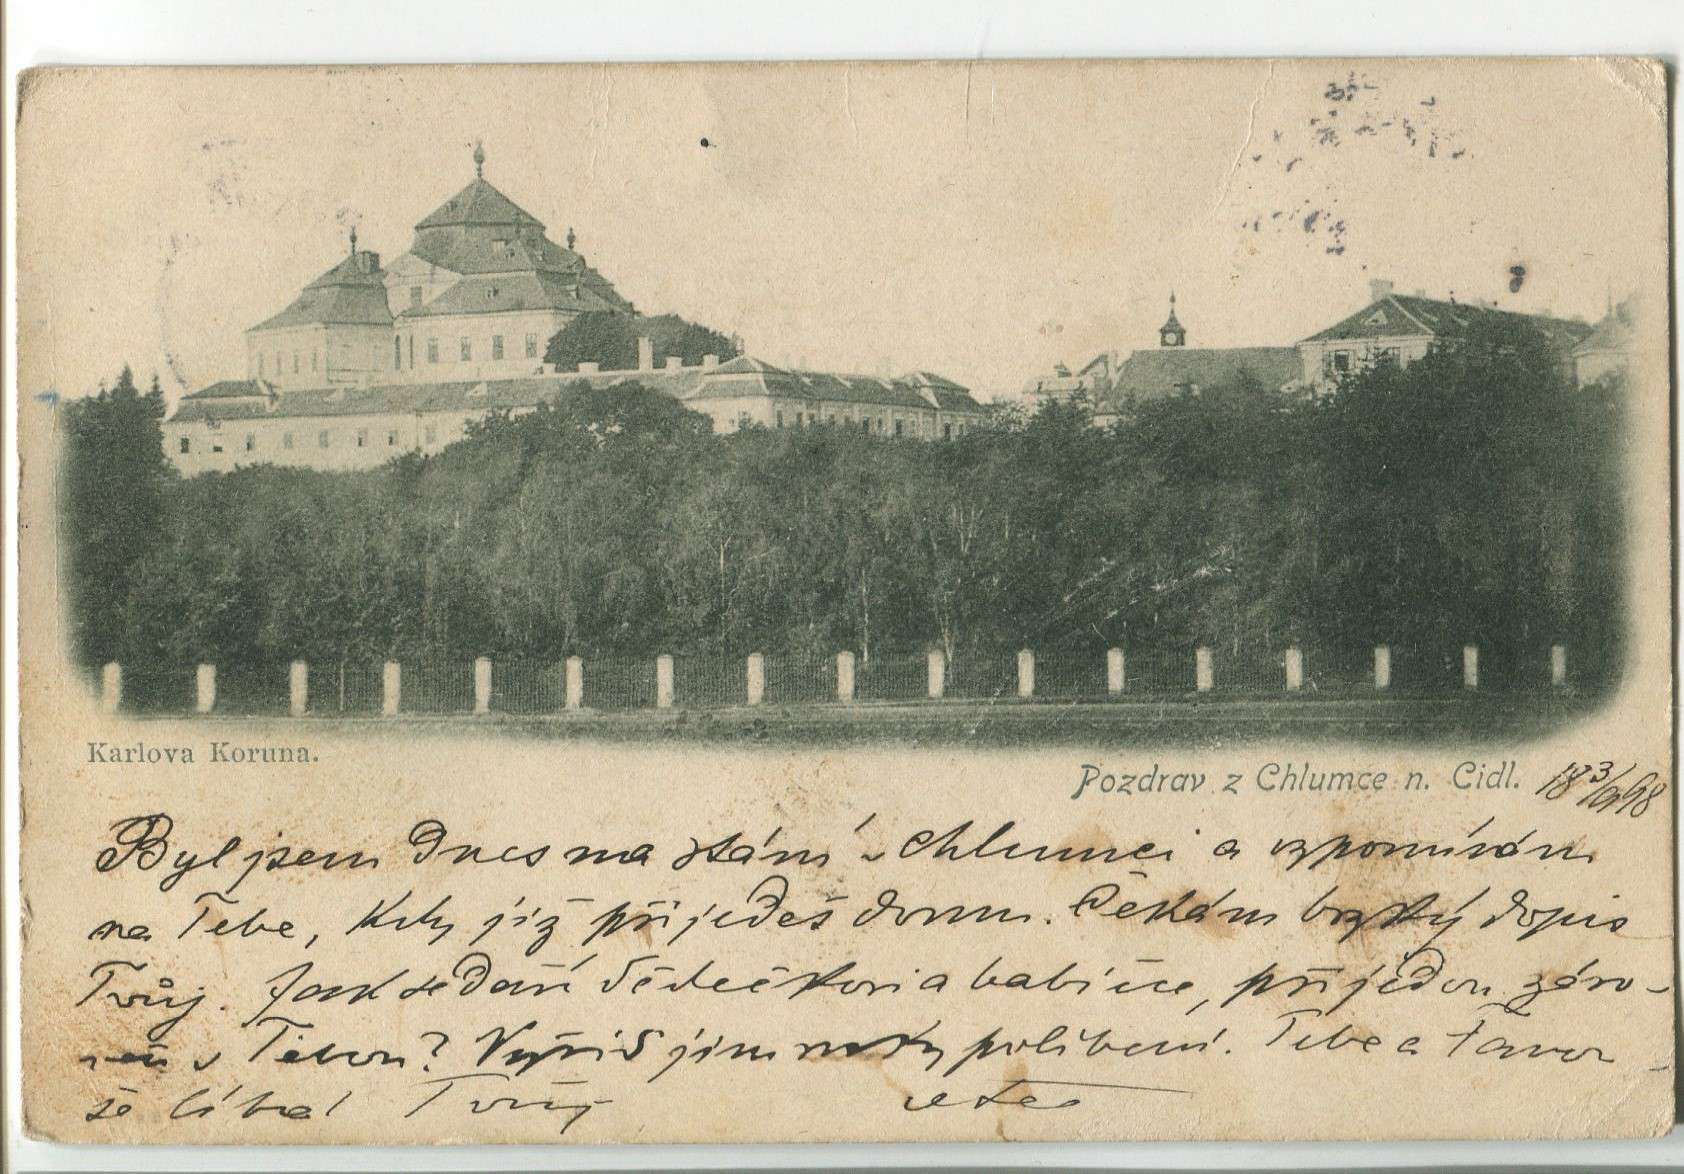 Karlova Koruna.
Pozdrav z Chlumce n. Cidl. 18 3/9 98
Byl jsem dnes na stání v Chlumci a vzpomínám
na Tebe, kdy již přijedeš domu. Čekám brzký dopis
Tvůj. Jak se daří dědečkovi a babičce, přijedou záro-
veň s Tebou? Vyřiď jim políbení. Tebe a
líbá Tvůj otec